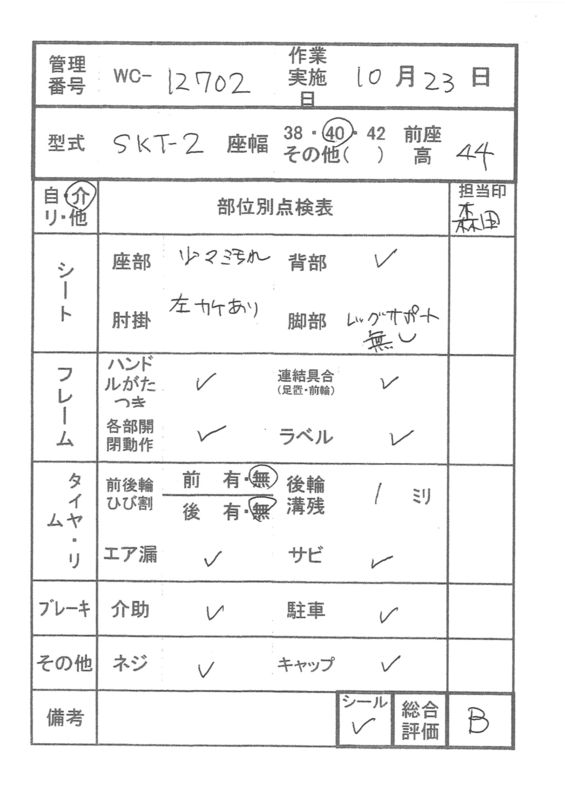 管理番号 WC- 12702 作業実施日 10月23日
型式 SKT-2 座幅 38・40・42 その他( ) 前座高 44
自・介・リ・他 部位別点検表 担当印 森田
シート 座部 少々汚れ 背部 ✓
肘掛 左カケあり 脚部 レッグサポート無し
フレーム ハンドルがたつき ✓ 連結具合(足置・前輪) ✓
各部開閉動作 ✓ ラベル ✓
タイヤ・リム 前後輪ひび割 前 有・無 後 有・無 後輪溝残 1 ミリ
エア漏 ✓ サビ ✓
ブレーキ 介助 ✓ 駐車 ✓
その他 ネジ ✓ キャップ ✓
備考 シール ✓ 総合評価 B